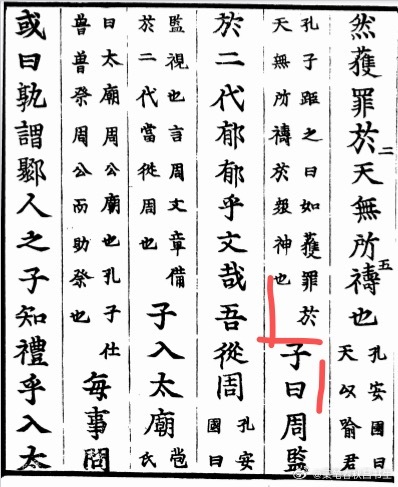 然獲罪於天無所禱也
二
五
孔安國曰
天以喻君
孔子距之曰如獲罪於
天無所禱於衆神也
子曰周監
於二代郁郁乎文哉吾從周
孔安
國曰
監視也言周文章備
於二代當從周也
子入太廟
苞
氏
曰太廟周公廟也孔子仕
魯魯祭周公而助祭也
每事問
或曰孰謂鄹人之子知禮乎入太